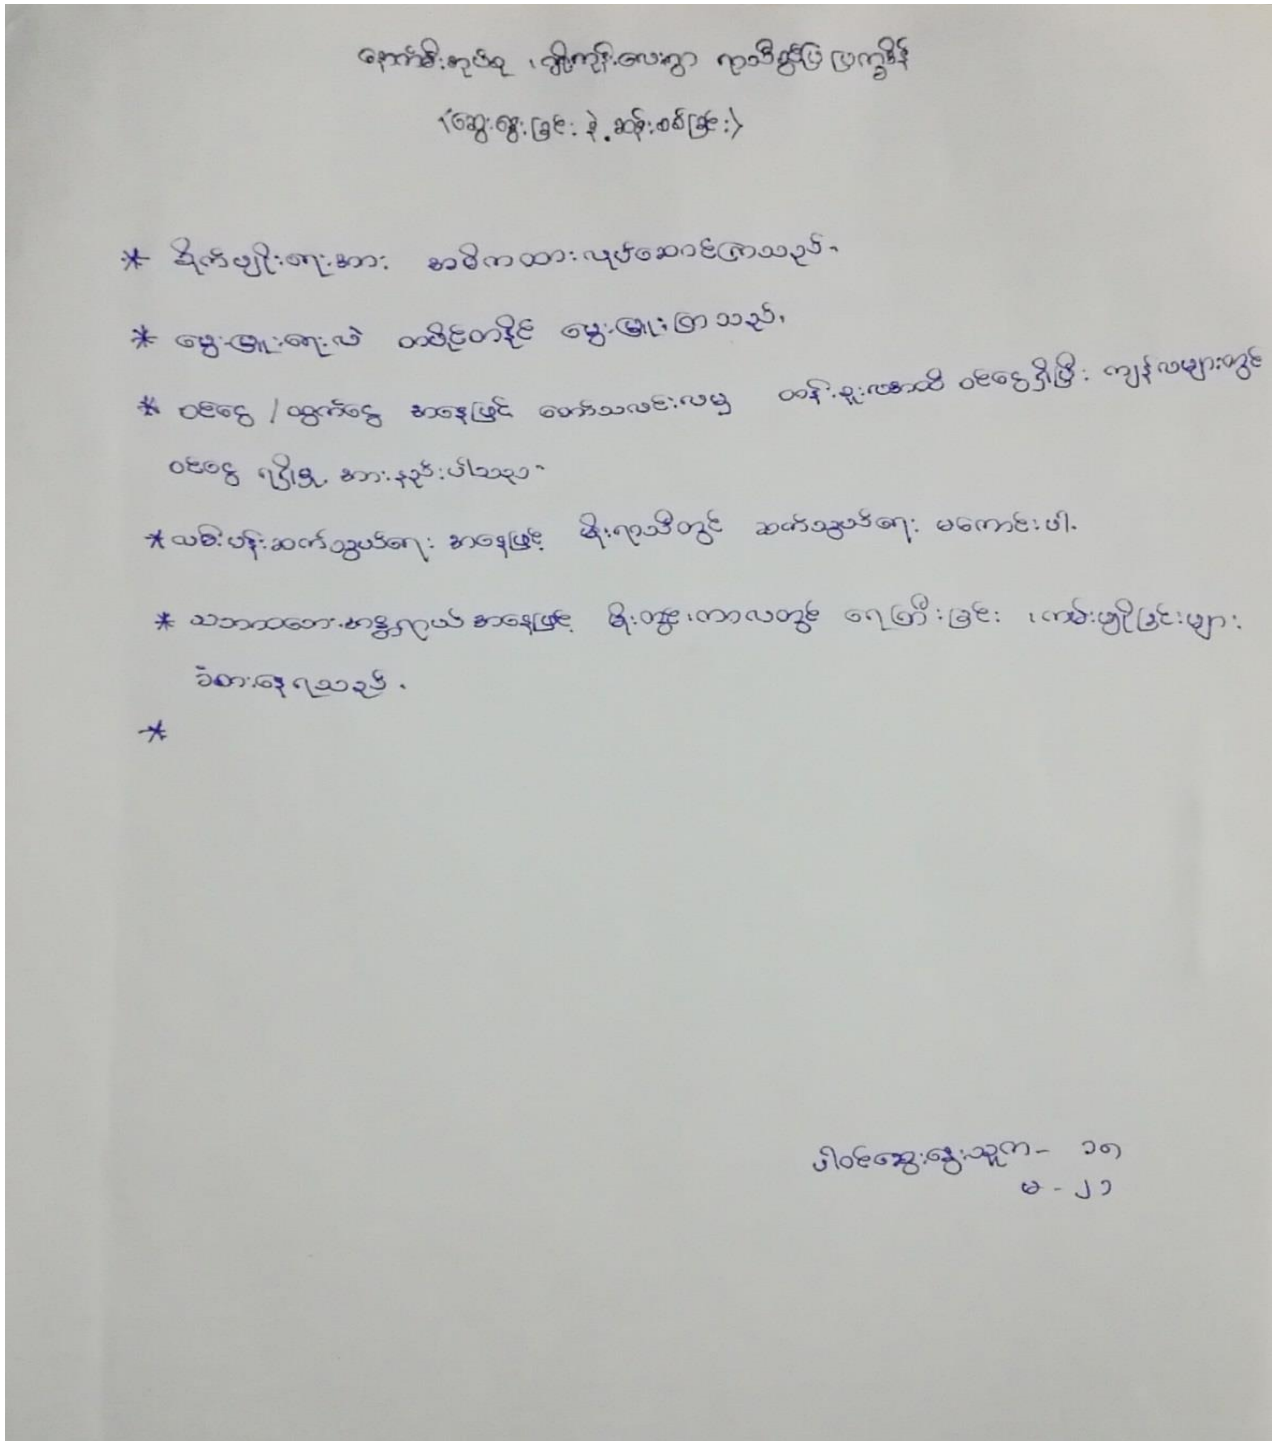 နောက်မီးအုပ်စု ၊ ကျွဲကုန်းလေးရွာ ရာသီခွင်ပြ ပြက္ခဒိန်
(ဆွေးနွေးခြင်း နဲ့ ဆန်းစစ်ခြင်း)
* စိုက်ပျိုးရေးအား အဓိကထားလုပ်ဆောင်ကြသည်။
* မွေးမြူးရေးလဲ တပိုင်တနိုင် မွေးမြူးကြသည်။
* ဝင်ငွေ / ထွက်ငွေ အနေဖြင့် တော်သလင်းလမှ တန်းခူးလအထိ ဝင်ငွေရှိပြီး ကျန်လများတွင်
ဝင်ငွေ ရရှိမှု အားနည်းပါသည်။
* လမ်းပန်းဆက်သွယ်ရေး အနေဖြင့် မိုးရာသီတွင် ဆက်သွယ်ရေး မကောင်းပါ။
* သဘာဝဘေးအန္တရာယ် အနေဖြင့် မိုးတွင်းကာလတွင် ရေကြီးခြင်း ၊ ကမ်းပြိုခြင်းများ
ခံစားနေရသည်။
*
ပါဝင်ဆွေးနွေးသူ က - ၁၅
မ - ၂၁